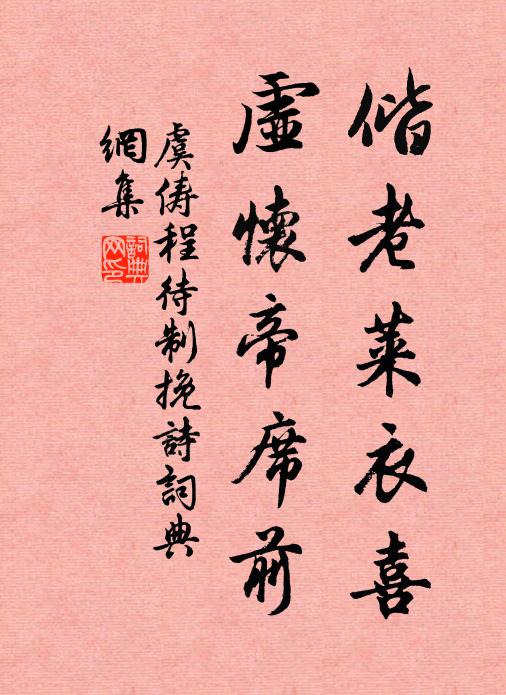 偕老萊衣喜
虛懷帝席前
虞儔程待制挽詩詞典
網集
詞典
网印